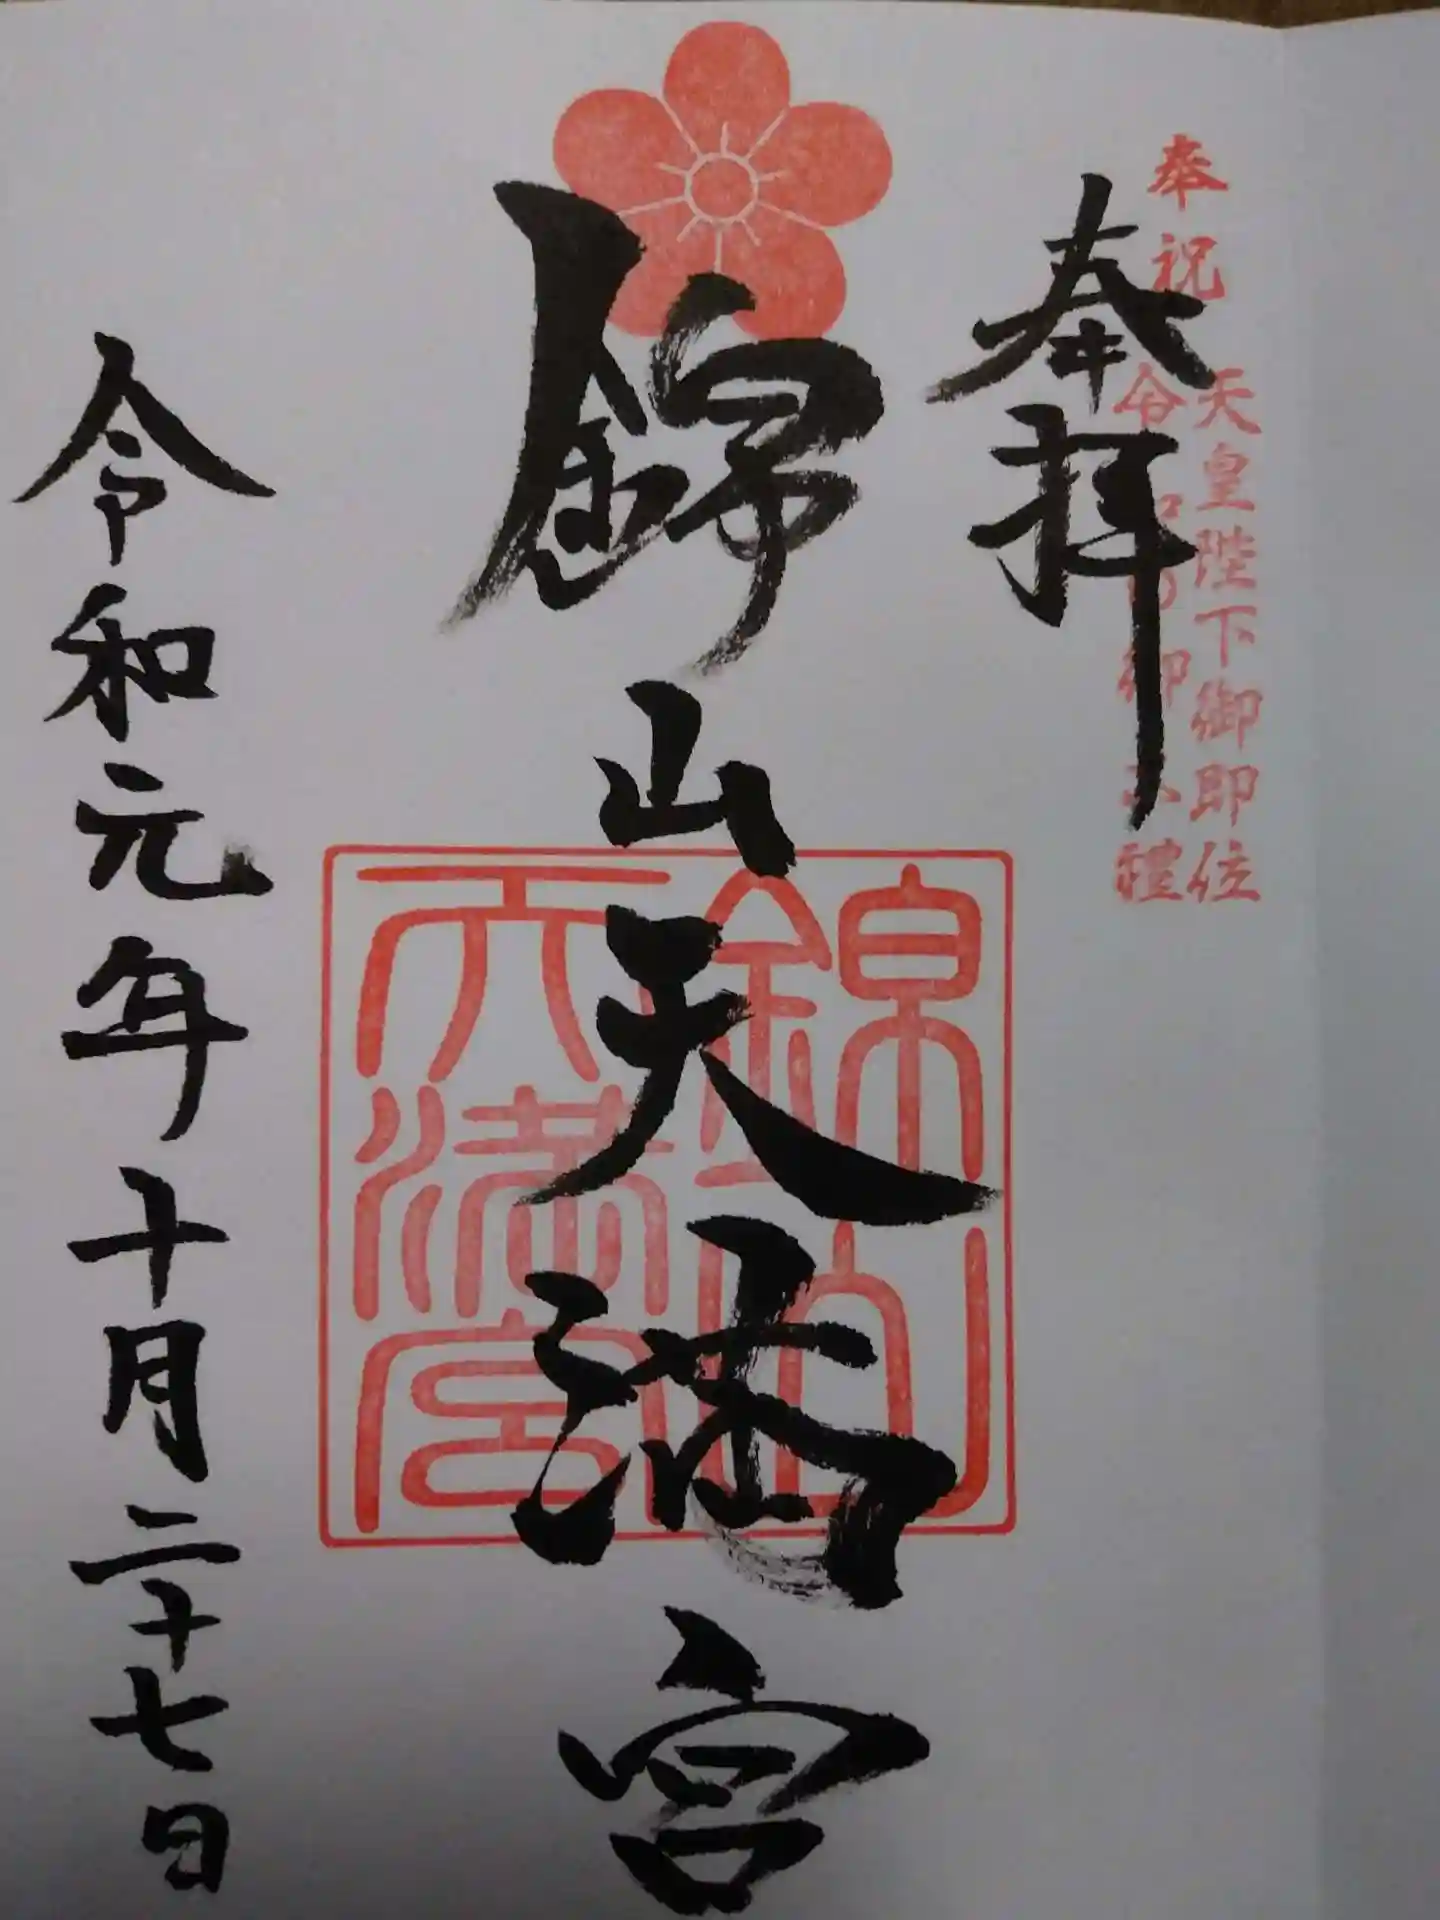 奉祝
天皇陛下御即位
奉拝
錦山天満宮
錦山
天満宮
令和元年十月二十七日